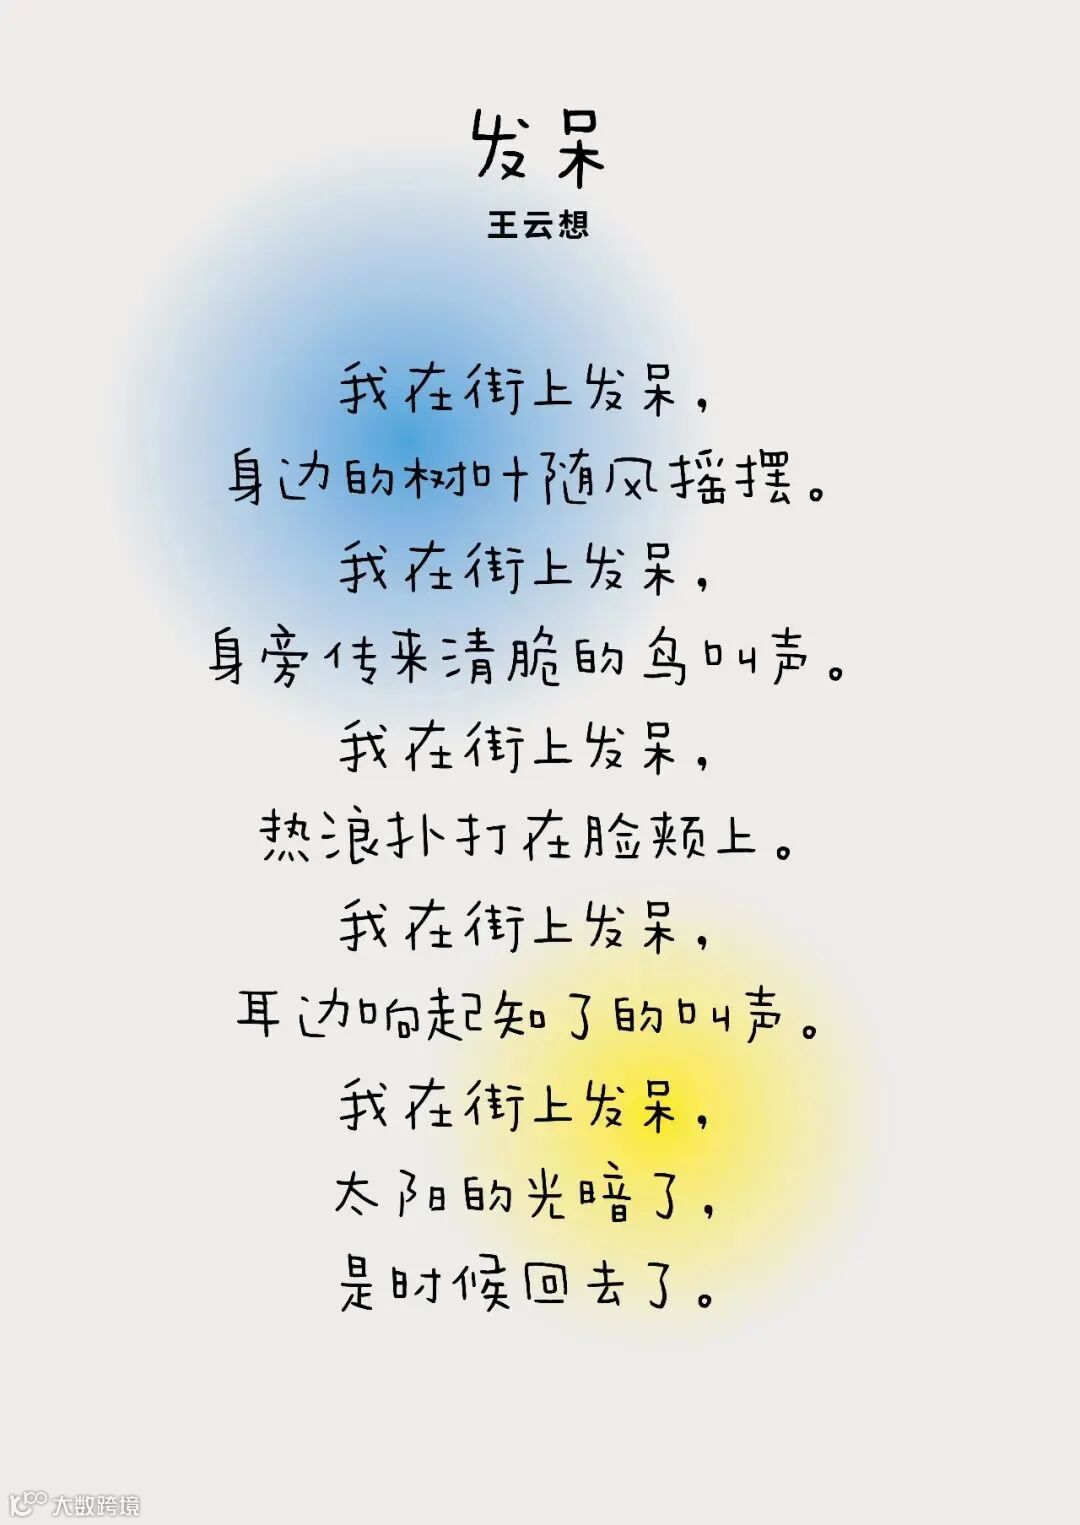 发呆
王云想
我在街上发呆，
身边的树叶随风摇摆。
我在街上发呆，
身旁传来清脆的鸟叫声。
我在街上发呆，
热浪扑打在脸颊上。
我在街上发呆，
耳边响起知了的叫声。
我在街上发呆，
太阳的光暗了，
是时候回去了。
大数跨境